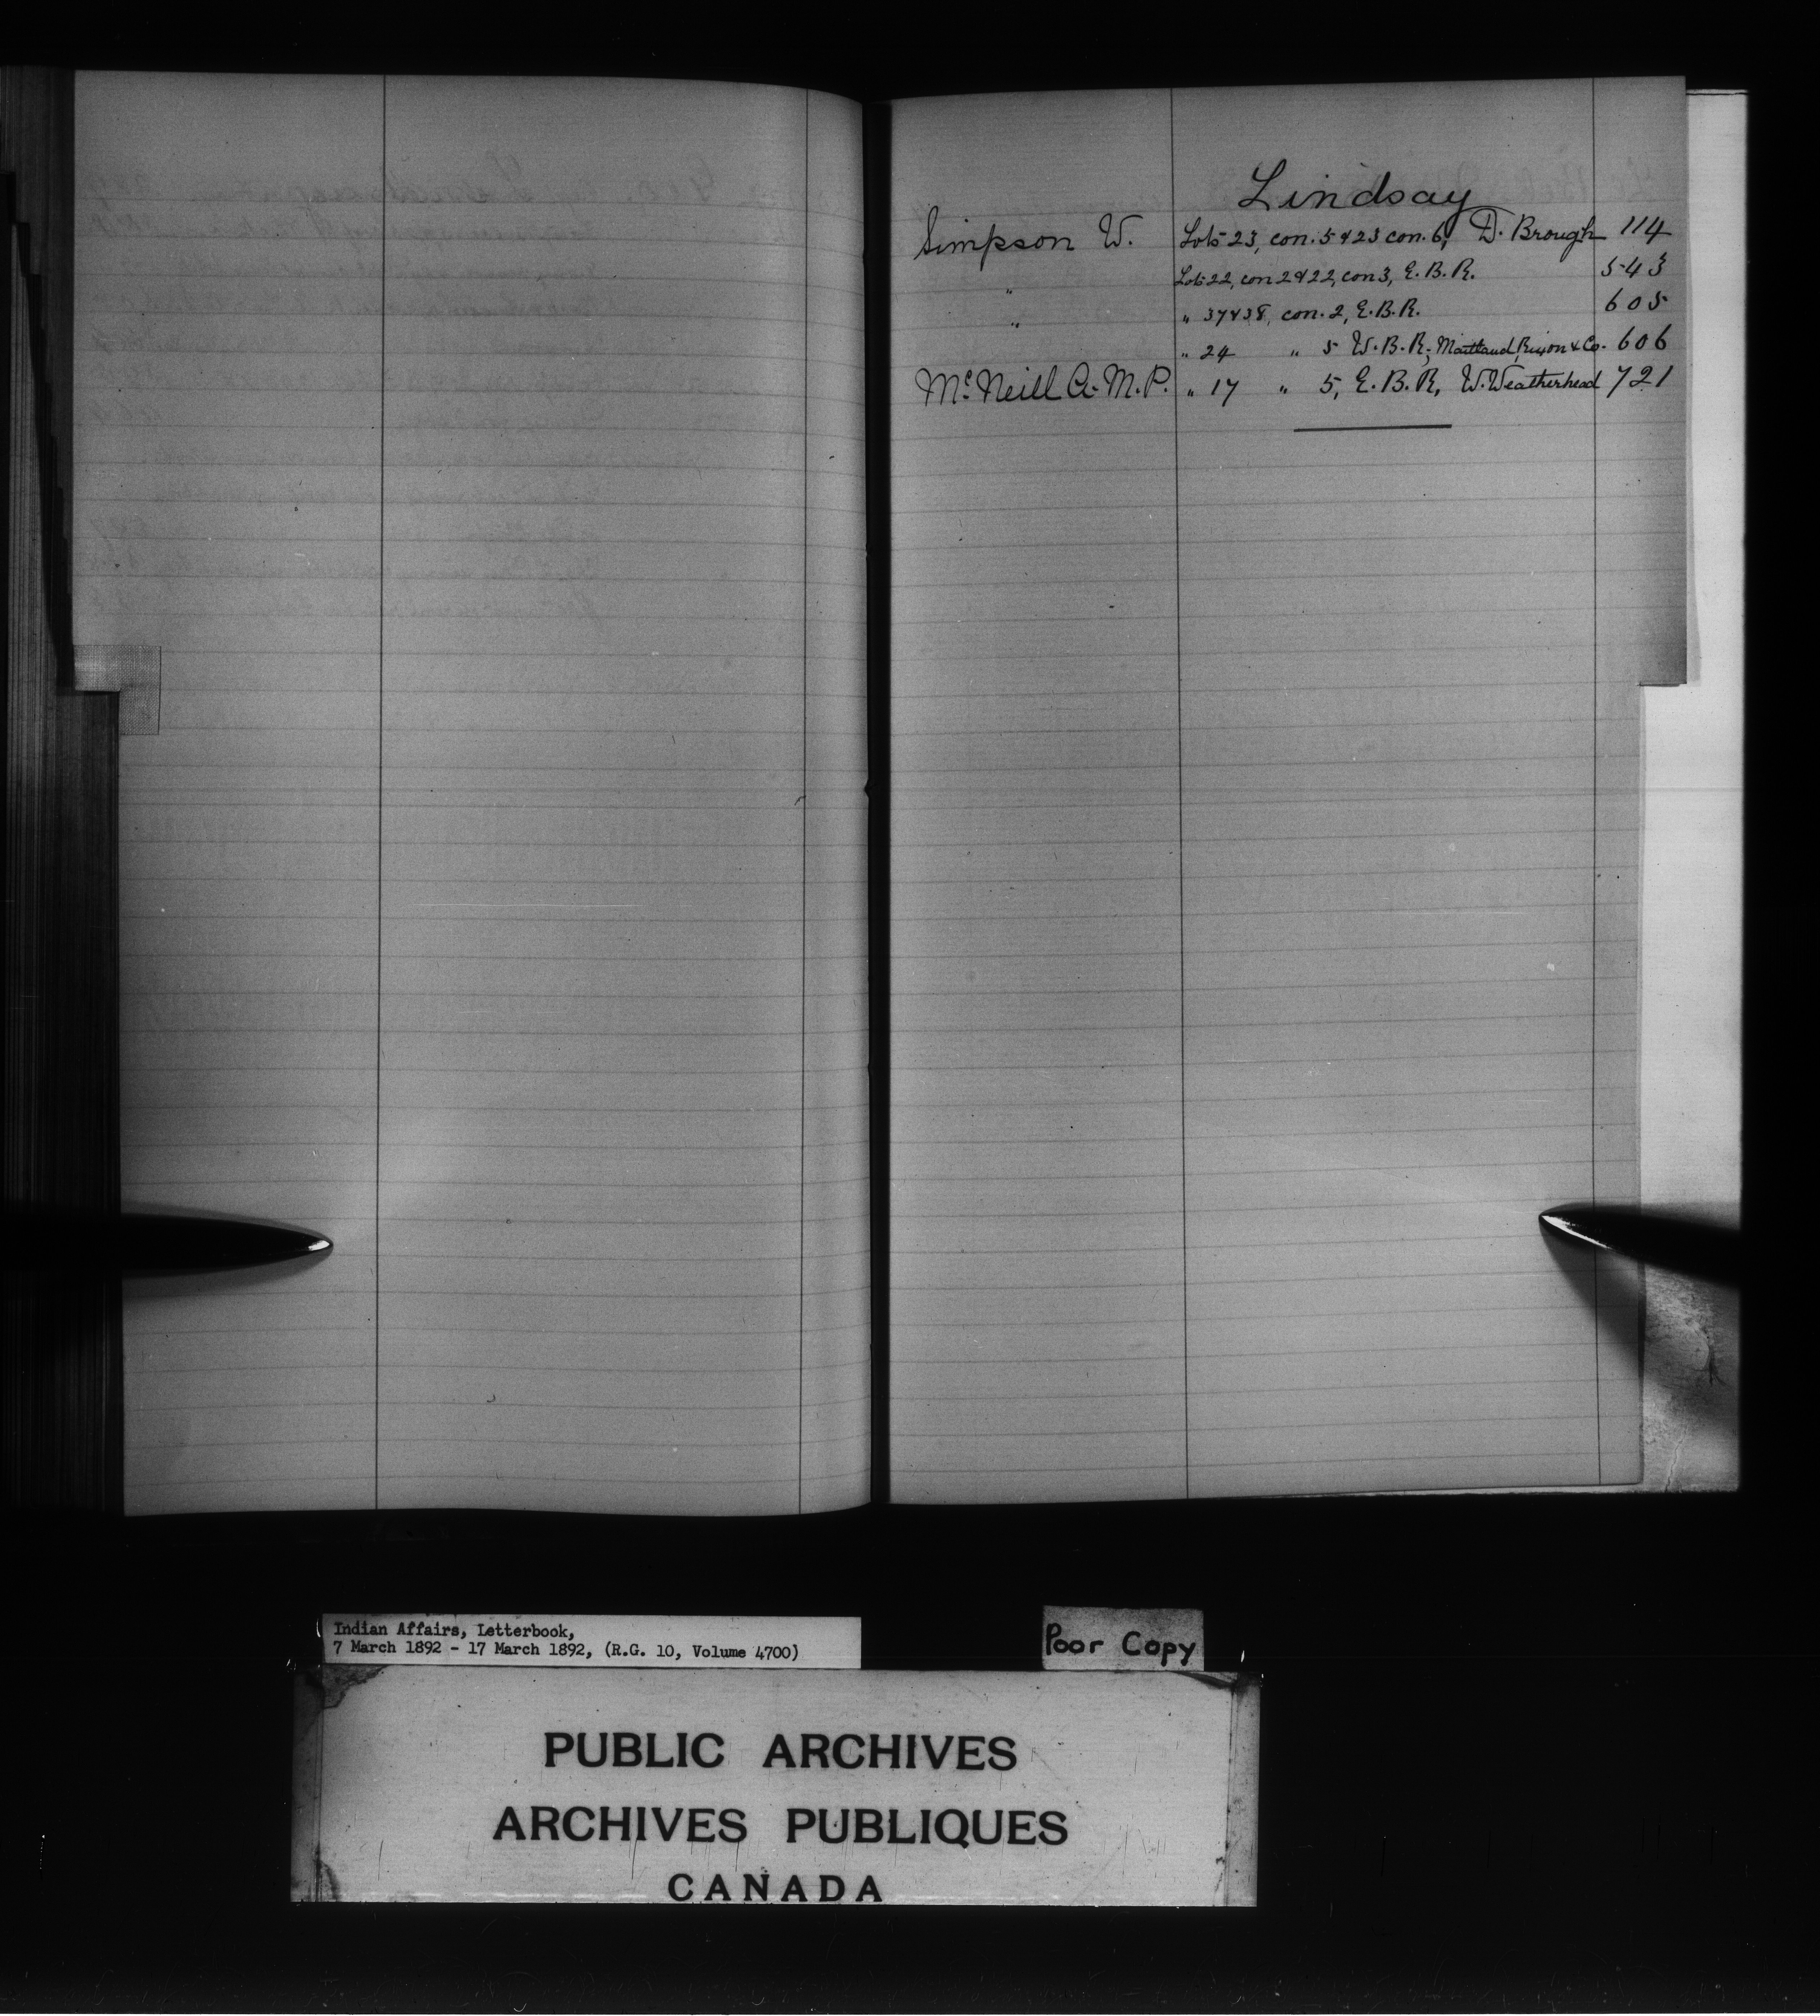 Lindsay
Simpson W. Lots 23, con. 5 & 23 con. 6, D. Brough 114
" Lots 22, con 2 & 22, con 3, E.B.R. 543
" " 37 & 38, con. 2, E.B.R. 605
" 24 " 5 W.B.R; Maitland, Rixon & Co. 606
McNeill A. M.P. " 17 " 5, E.B.R, W. Weatherhead 721
Indian Affairs, Letterbook,
7 March 1892 - 17 March 1892, (R.G. 10, Volume 4700)
Poor Copy
PUBLIC ARCHIVES
ARCHIVES PUBLIQUES
CANADA